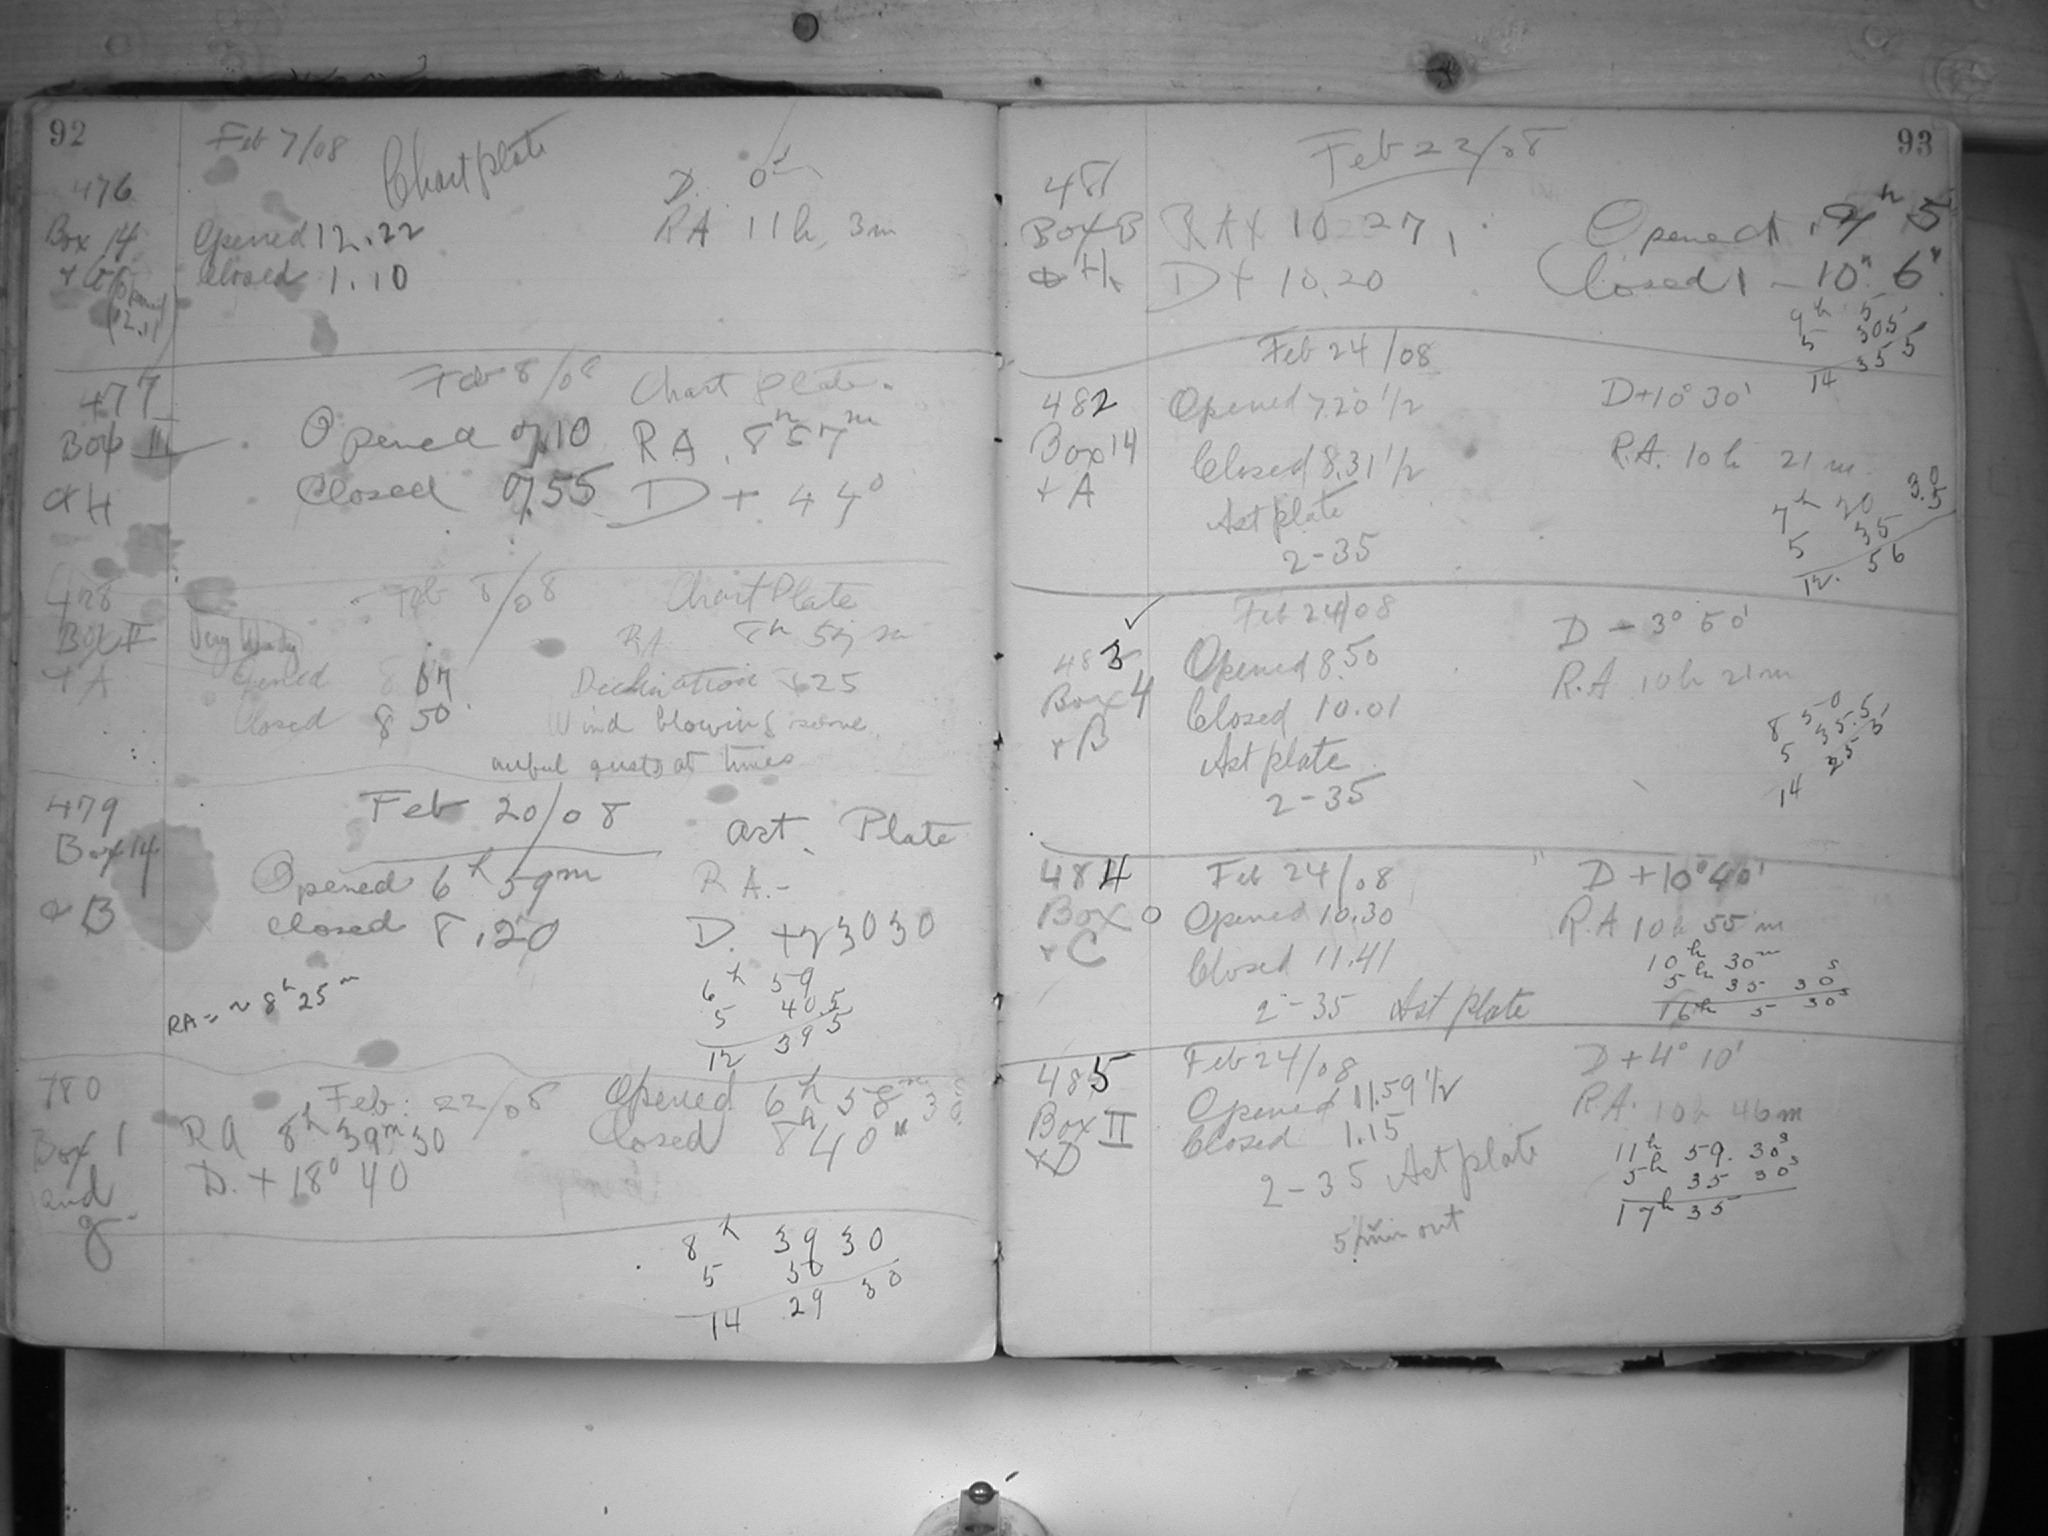 92
Feb 7/08 Chart plate
476
Box 14
Opened 12.22
Closed 1.10
D. 0°
RA 11h, 3m
477
Box III
& H
Feb 8/08 Chart Plate.
Opened 7.10 RA. 8h 57m
Closed 7.55 D + 44°
478
Box II
& A
Feb 8/08 Chart Plate
Very Windy
RA 8h 57m
Opened 8 07
Declination +25
Closed 8 50
Wind blowing some
awful gusts at times
479
Box 14
& B
Feb 20/08 Ast. Plate
Opened 6h 59m RA.-
Closed 8.20 D. +23030
RA = ~ 8h 25m
6h 59
5 40.5
12 39 5
480
Box 1
and
g
Feb: 22/08
RA 8h 39m 30
D. + 18° 40
Opened 6h 58m 30
Closed 8h 40m
8h 39 30
5 50
14 29 30
93
Feb 22/08
481
Box B
& H
RA x 10 27
D + 10.20
Opened 9h 5
Closed 10h 6
9h 5
5 30 5
14 35 5
Feb 24/08
482
Box 14
+ A
Opened 7.20 1/2
Closed 8.31 1/2
Ast plate
2-35
D+10° 30'
R.A. 10h 21m.
7h 20 30
5 35 5
12. 56
Feb 24/08
483
Box 4
+ B
Opened 8.50
Closed 10.01
Ast plate
2-35
D - 3° 50'
R.A 10h 21m
8 50
5 35.5
14 25 5
484
Box 0
+ C
Feb 24/08
Opened 10.30
Closed 11.41
2-35 Ast plate
D +10° 40'
R.A 10h 55m
10h 30m
5h 35 30s
16h 5 30s
485
Box II
+ D
Feb 24/08
Opened 11.59 1/2
Closed 1.15
2-35 Ast plate
5 min out
D + 4° 10'
R.A. 10h 46m
11h 59. 30s
5h 35 30s
17h 35